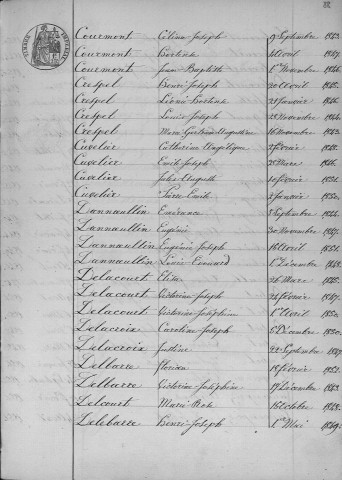 Courmont Célina Joseph 9 Septembre 1843.
Courmont Hortense Avril 1847.
Courmont Jean Baptiste 1er Novembre 1844.
Crespel Henri Joseph 20 Avril 1842.
Crespel Léonie Hortense 21 Janvier 1846.
Crespel Louis Joseph 28 Novembre 1844.
Crespel Marie Augustine 16 Novembre 1843.
Cuvelier Catherine Angélique 2 février 1848.
Cuvelier Emile Joseph 25 Mars 1846.
Cuvelier Jules Auguste 10 février 1851.
Cuvelier Pierre Emile 2 Janvier 1850.
Dannaullin Emérance 5 Septembre 1844.
Dannaullin Eugénie 30 Novembre 1847.
Dannaullin Eugénie Joseph 16 Avril 1851.
Dannaullin Edouard 1er Décembre 1848.
Delacourt Elisa 26 Mars 1852.
Delacourt Victorine Joseph 24 février 1847.
Delacourt Victorine Joséphine 1er Avril 1850.
Delacroix Caroline Joseph 5 Décembre 1850.
Delacroix Justine 22 Septembre 1847.
Delbarre Florian 18 février 1852.
Delbarre Victorine Joséphine 17 Décembre 1843.
Delcourt Marie Rose 16 Octobre 1848.
Delebarre Henri Joseph 1er Mai 1849.